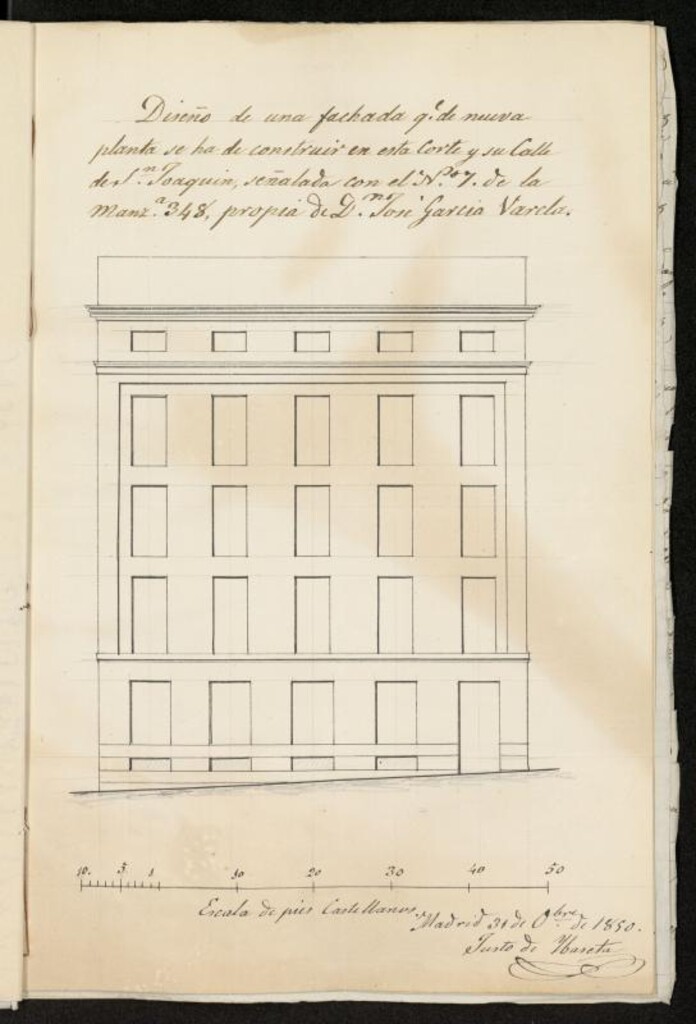 Diseño de una fachada q.e de nueva
planta se ha de construir en esta Corte y su Calle
de S.n Joaquin, señalada con el N.º 7. de la
Manz.a 348, propia de D.n José Garcia Varela.
10. 5. 1 10 20 30 40 50
Escala de pies Castellanos.
Madrid 31 de 0bre de 1850.
Justo de